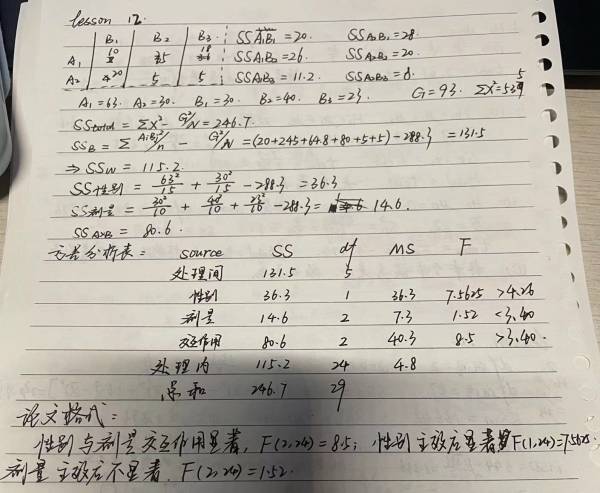 lesson 12.
B₁ B₂ B₃ SSA₁B₁ = 20. SSA₂B₁ = 28.
A₁ 10 35 18 SSA₁B₂ = 26. SSA₂B₂ = 20.
A₂ 20 5 5 SSA₁B₃ = 11.2. SSA₂B₃ = 8.
A₁ = 63. A₂ = 30. B₁ = 30. B₂ = 40. B₃ = 23. G = 93. Σx² = 535
SStotal = Σx² − G²/N = 246.7.
SSB = Σ AiBj²/n − G²/N = (20+245+64.8+80+5+5) − 288.3 = 131.5
⇒ SSW = 115.2.
SS性别 = 63²/15 + 30²/15 − 288.3 = 36.3
SS剂量 = 30²/10 + 40²/10 + 23²/10 − 288.3 = 14.6.
SSA×B = 80.6.
方差分析表: source SS df MS F
处理间 131.5 5
性别 36.3 1 36.3 7.5625 >4.26
剂量 14.6 2 7.3 1.52 <3.40
交互作用 80.6 2 40.3 8.5 >3.40.
处理内 115.2 24 4.8
总和 246.7 29
论文格式:
性别与剂量交互作用显著, F(2,24) = 8.5; 性别主效应显著 F(1,24) = 7.5625.
剂量主效应不显著, F(2,24) = 1.52.